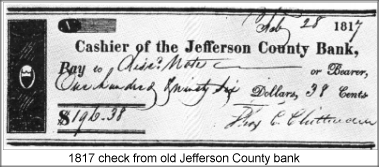 Feb 28 1817
Cashier of the Jefferson County Bank,
Pay to Disc. Notes or Bearer,
One hundred Ninety Six Dollars, 38 Cents
$196.38
1817 check from old Jefferson County bank